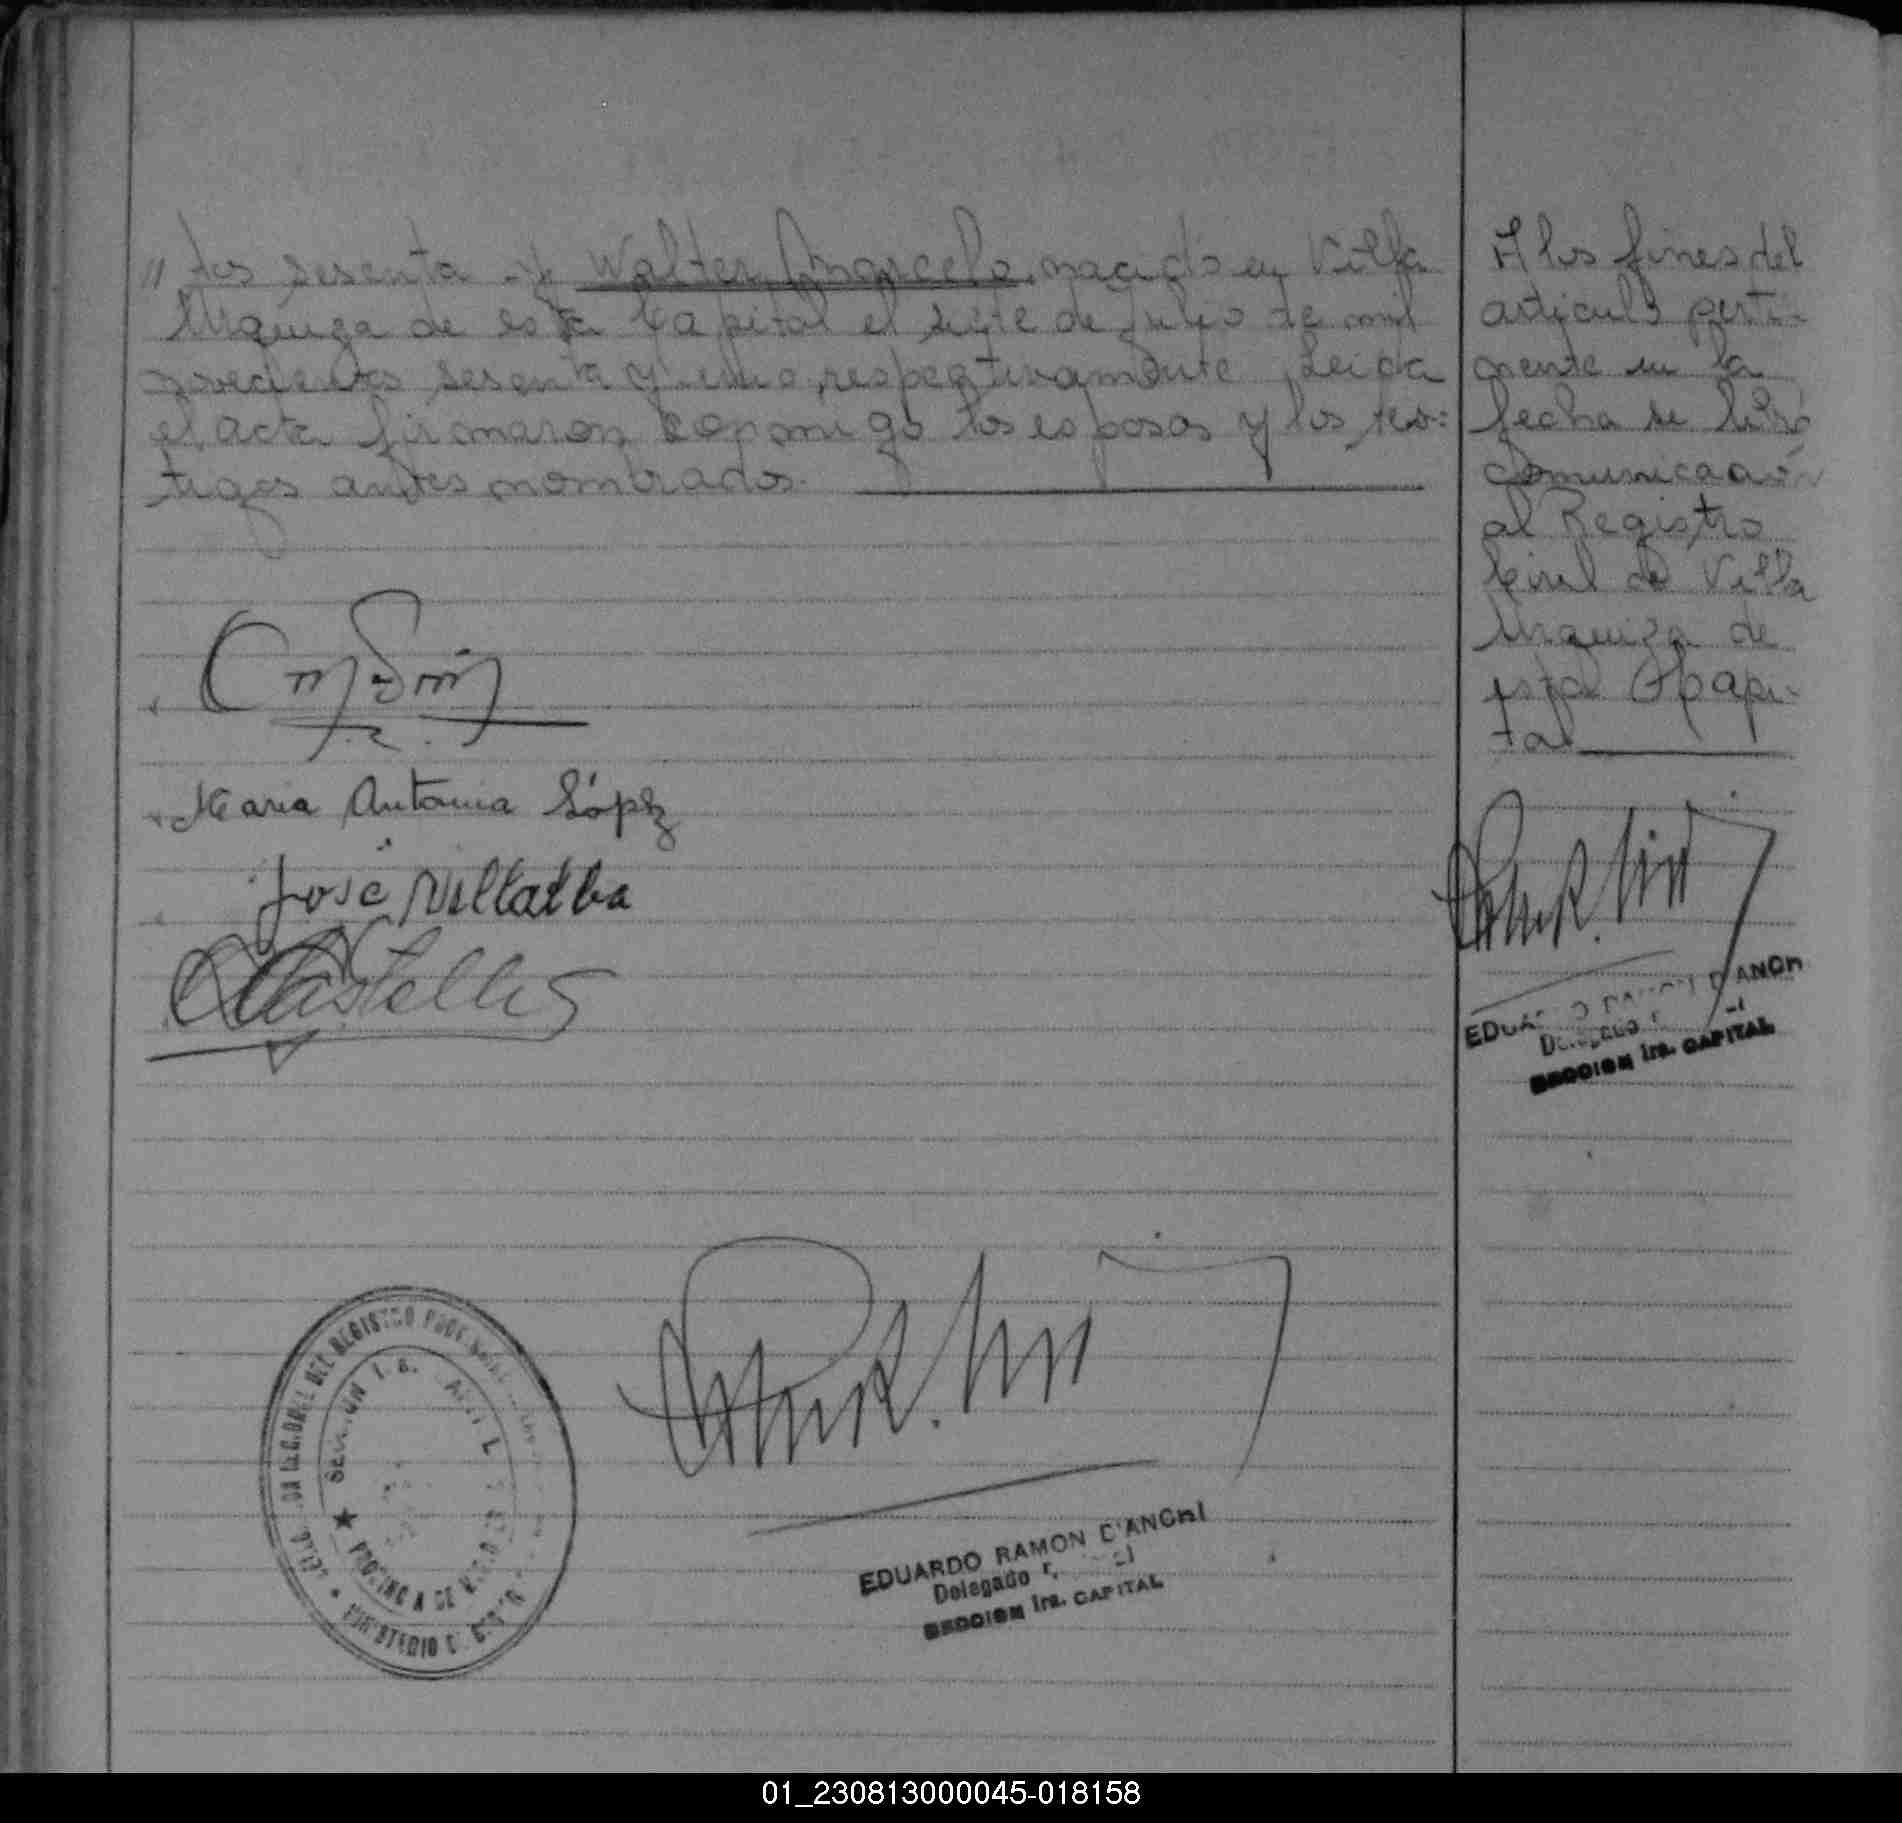 " tos sesenta y Walter Marcelo, nacido en Villa
Urquiza de esta Capital el siete de Julio de mil
novecientos sesenta y uno, respectivamente. Leida
el acta firmaron conmigo los esposos y los tes=
tigos antes nombrados.
Maria Antonia López
José Villalba
Castellis
EDUARDO RAMON D'ANCHI
Delegado
SECCION 1ra. CAPITAL
DEL REGISTRO
SECCION 1
MINISTERIO
A los fines del
articulo perti-
nente en la
fecha se libró
comunicación
al Registro
Civil de Villa
Urquiza de
esta Capi-
tal
D'ANCHI
Delegado
SECCION 1ra. CAPITAL
01_230813000045-018158